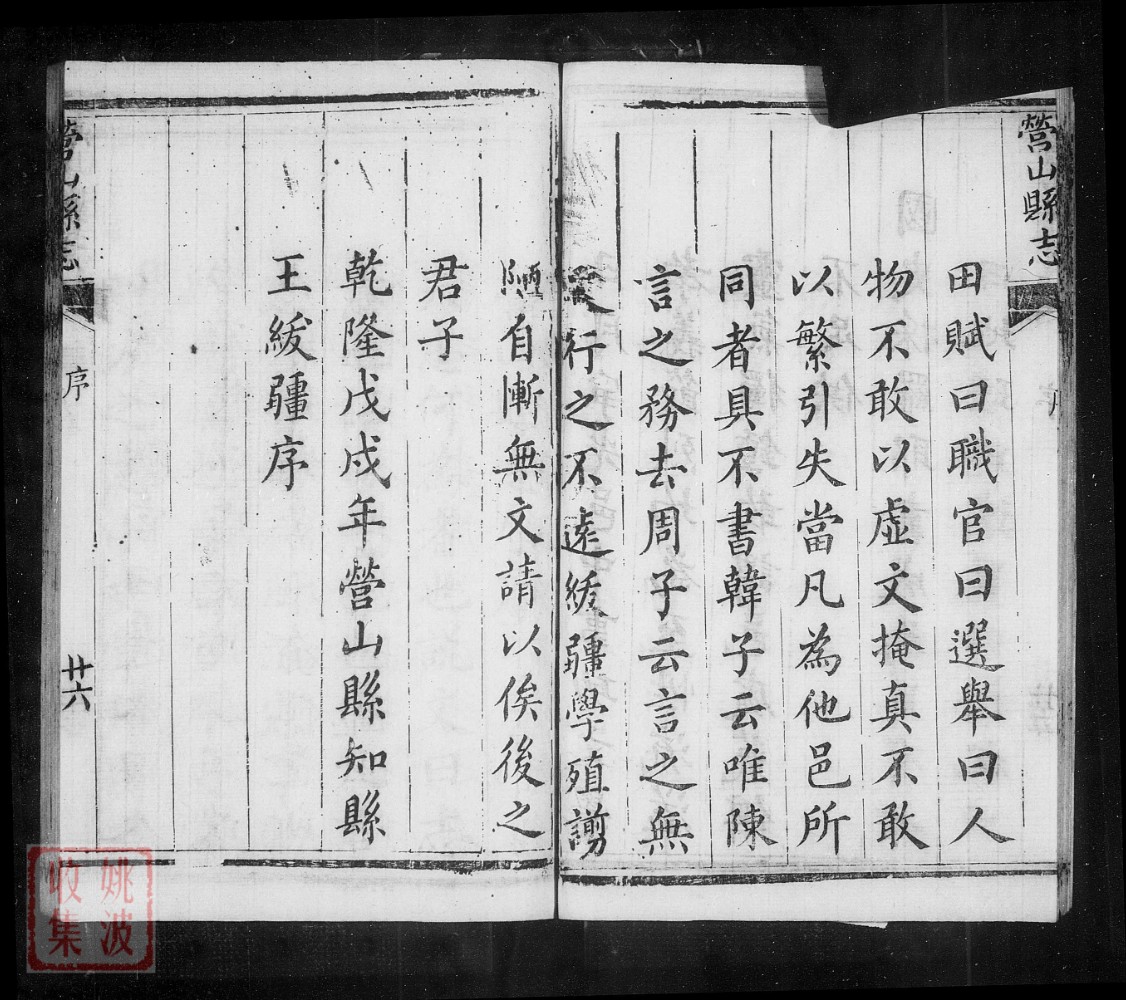 營山縣志
田賦曰職官曰選舉曰人
物不敢以虛文掩真不敢
以繁引失當凡為他邑所
同者具不書韓子云唯陳
言之務去周子云言之無
行之不遠緩疆學殖謭
陋自慚無文請以俟後之
君子
乾隆戊戌年營山縣知縣
王緩疆序
營山縣志
序
廿六
姚波
收集